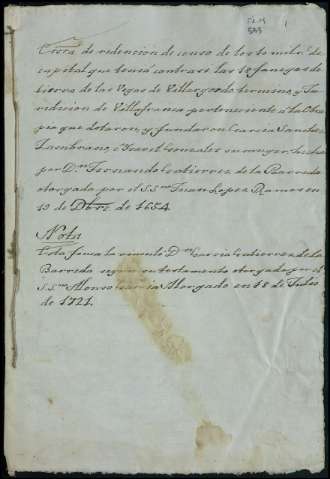 1
553
de redencion de censo de
de capital que tenia contra si las 10 fanegas de
tierra de las Vegas de Villargordo termino, y Ju
ridicion de Villafranca perteneciente a la Obra
pia que dotaron, y fundaron Garcia Sanchez
Zambrano, e Gonzalez su muger hecha
por Dn. Fernando Gutierrez de la Barreda
otorgada por el SSno. Juan Lopez Ramos en
19 de Dbre. de 1654.
Nota
Esta finca la vinculo Dn. Garcia Gutierrez de la
Barreda segun su testamento otorgado por el
SSno. Alonso Garcia Morgado en 18 de Julio
de 1721.